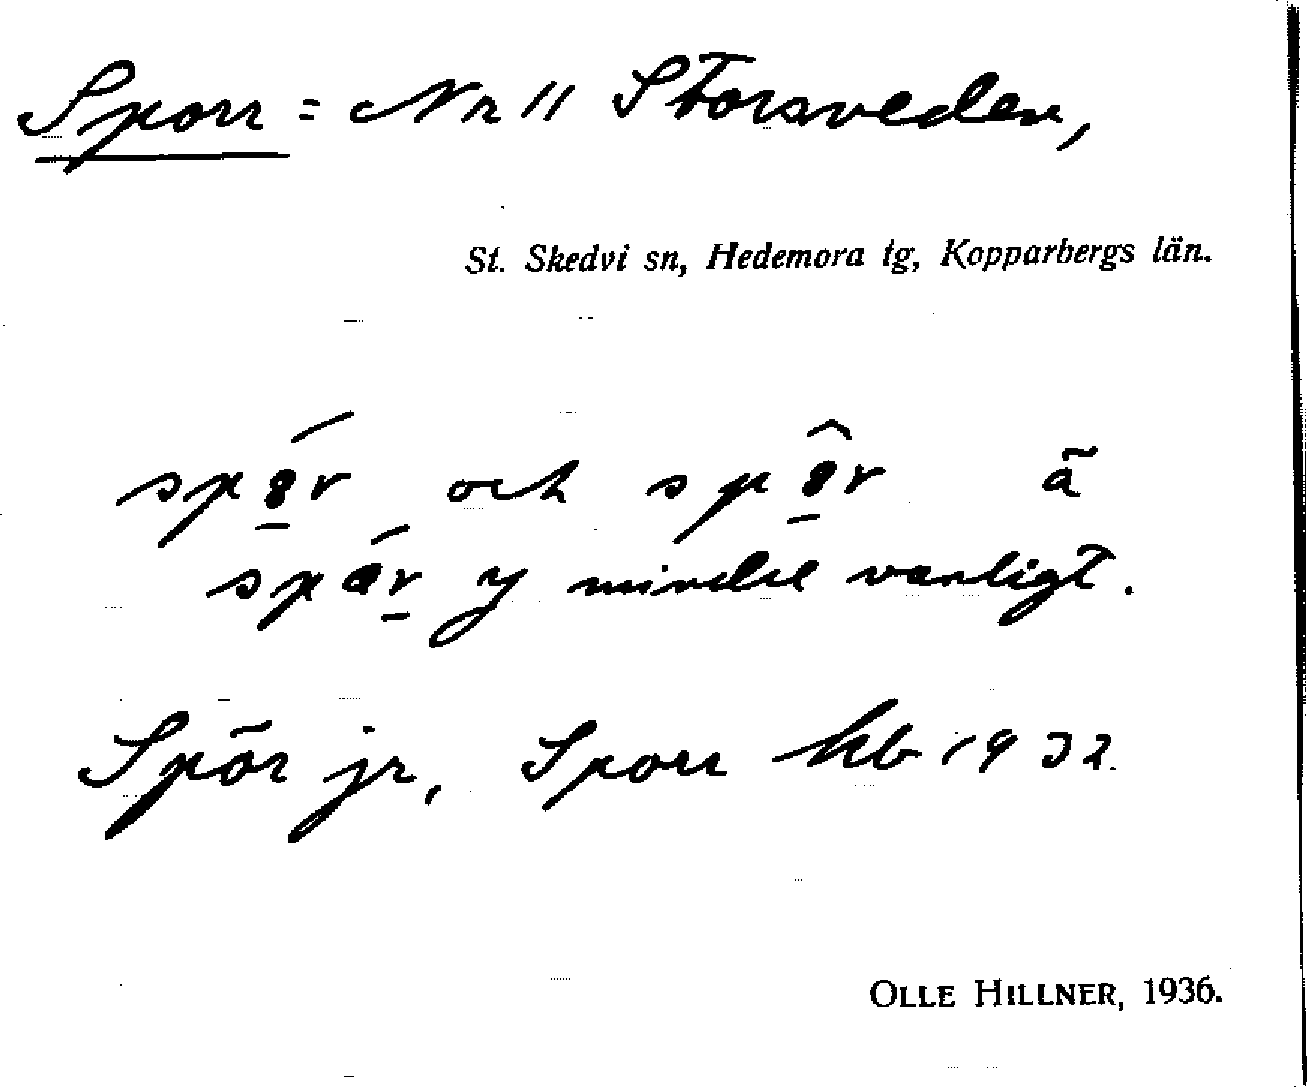 Sporr = Nr 11 Storsveden,
St. Skedvi sn, Hedemora tg, Kopparbergs län.
och ä
mindre vanligt.
Spör jr, Sporr kb 1932.
OLLE HILLNER, 1936.